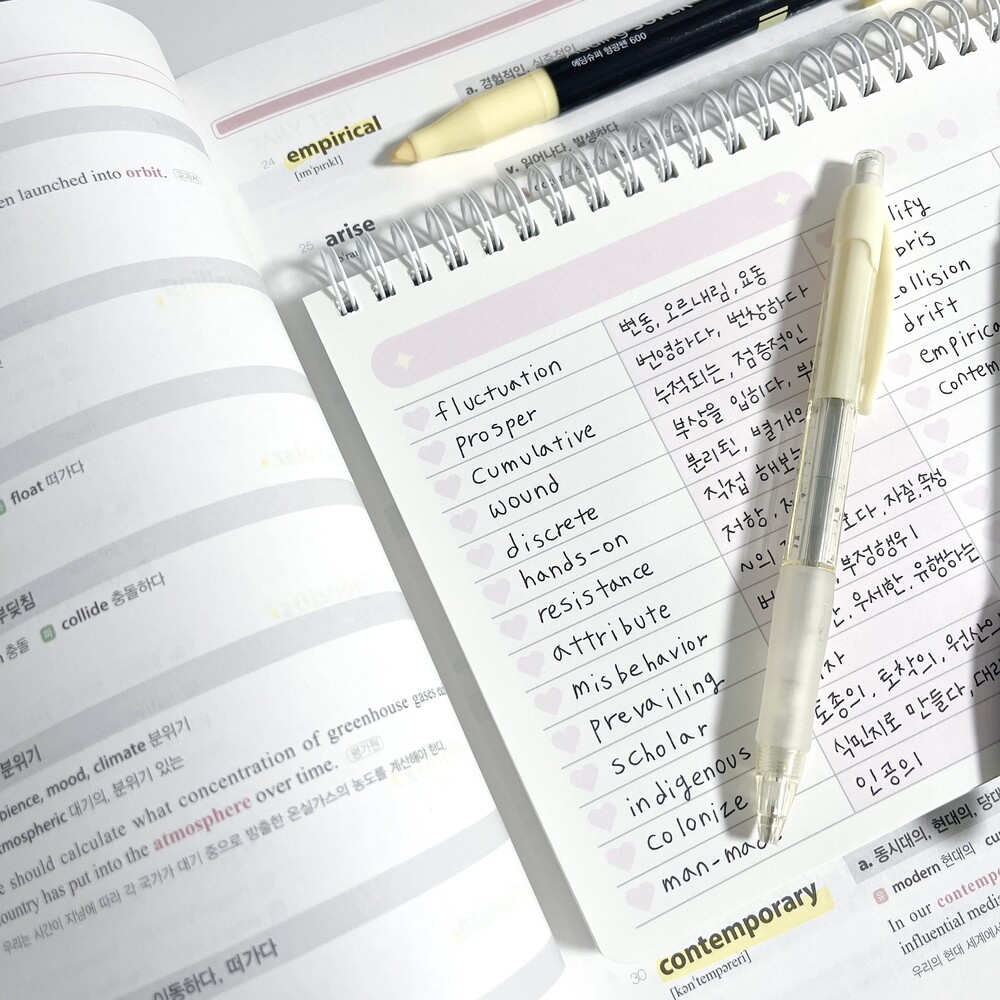 en launched into orbit. 교과서
float 떠가다
부딪침
충돌 파 collide 충돌하다
분위기
bience, mood, climate 분위기
mospheric 대기의, 분위기 있는
e should calculate what concentration of greenhouse gases
ountry has put into the atmosphere over time. 평가원
우리는 시간이 지남에 따라 각 국가가 대기 중으로 방출한 온실가스의 농도를 계산해야 한다.
이동하다, 떠가다
a. 경험적인, 실증적인
SUPER
에딩슈퍼 형광펜 600
24 empirical
[ɪmˈpɪrɪkl]
v. 일어나다, 발생하다
25 arise
fluctuation 변동, 오르내림, 요동
prosper 번영하다, 번창하다
cumulative 누적되는, 점증적인
wound 부상을 입히다, 부
discrete 분리된, 별개의
hands-on 직접 해보는
resistance 저항,
attribute ~의 자질, 속성
misbehavior 부정행위
prevailing 우세한, 유행하는
scholar 자
indigenous 토종의, 토착의, 원산의
colonize 식민지로 만들다, 대
man-made 인공의
lify
bris
collision
drift
empirica
contem
a. 동시대의, 현대의, 당대
유 modern 현대의 cu
30 contemporary
[kənˈtempəreri]
In our contempo
influential medi
우리의 현대 세계에서